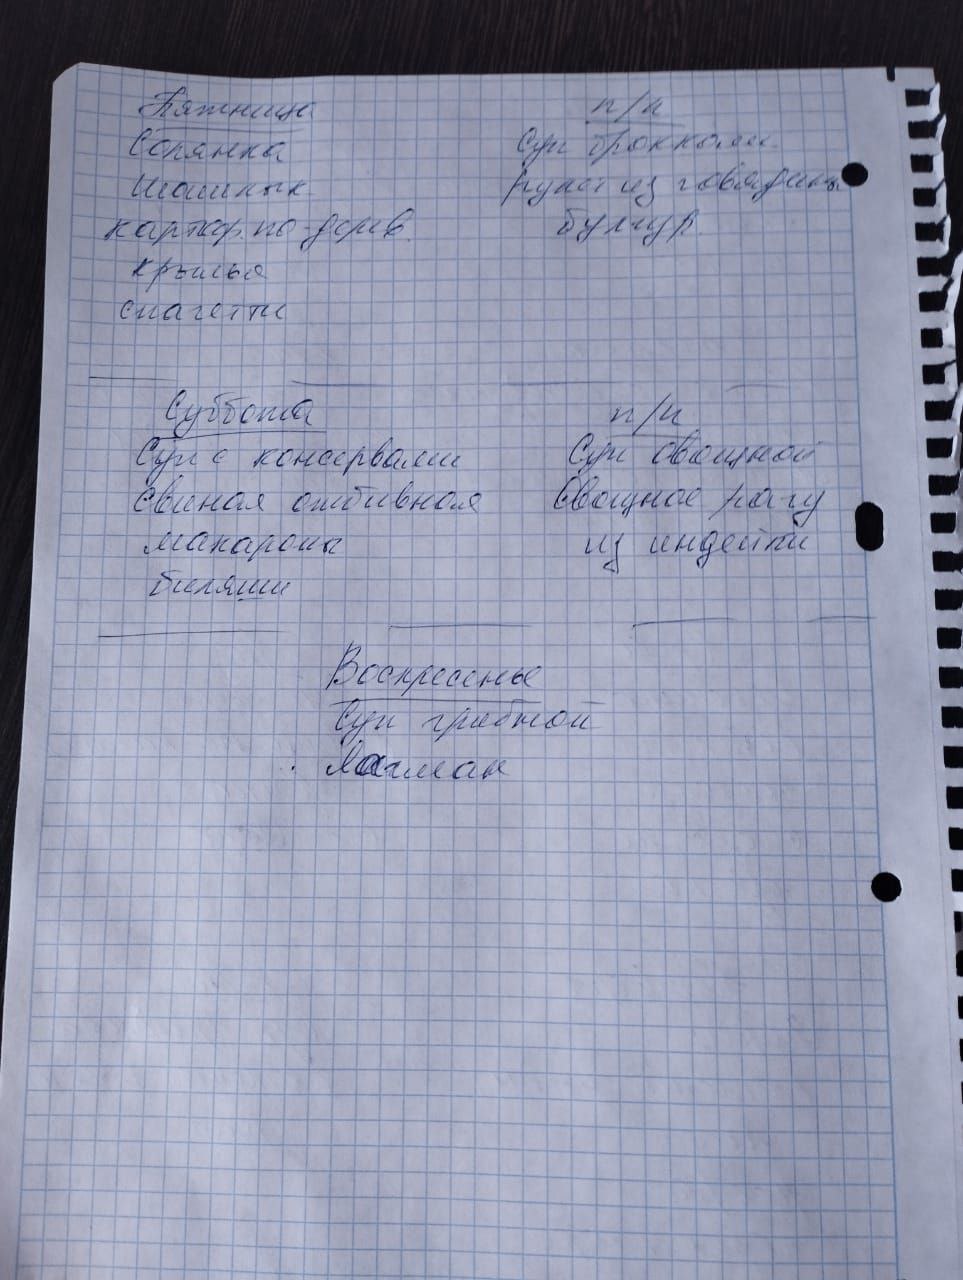 Пятница
Солянка
Шашлык
картоф. по-дерев.
крылья
спагетти
п/п
Суп брокколи
рулет из говядины
булгур.
Суббота
Суп с консервами
свиная отбивная
макароны
биляши
п/п
Суп овощной
Овощное рагу
из индейки
Воскресенье
Суп грибной
Лагман